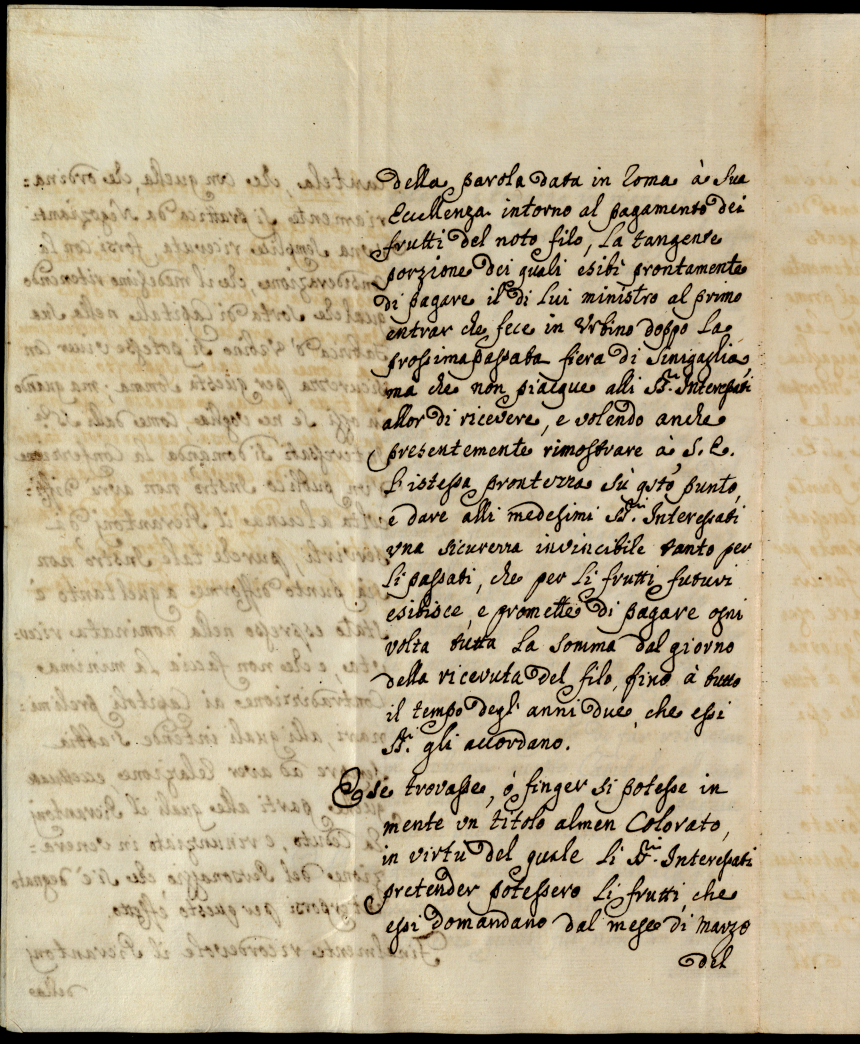 della parola data in Roma à Sua
Eccellenza intorno al pagamento dei
frutti del noto filo, la tangente
porzione dei quali esibì prontamente
di pagare il di lui ministro al primo
entrar che fece in Urbino doppo la
prossima passata fiera di Sinigaglia,
ma che non piacque alli SS.ri Interessati
allor di ricevere, e volendo anche
presentemente rimostrare à S. E.
l'istessa prontezza sù qsto punto,
e dare alli medesimi SS.ri Interessati
vna sicurezza invincibile tanto per
li passati, che per li frutti futuri
esibisce, e promette di pagare ogni
volta tutta la somma dal giorno
della ricevuta del filo, fino à tutto
il tempo degl' anni due, che essi
SS.ri gli accordano.
E se trovasse, ò finger si potesse in
mente vn titolo almen Colorato,
in virtù del quale li SS.ri Interessati
pretender potessero li frutti, che
essi domandano dal mese di Marzo
del